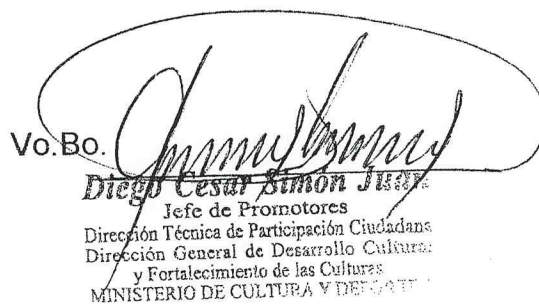 Vo.Bo.
Diego Cesar Simón Juan
Jefe de Promotores
Dirección Técnica de Participación Ciudadana
Dirección General de Desarrollo Cultural
y Fortalecimiento de las Culturas
MINISTERIO DE CULTURA Y DEPORTE